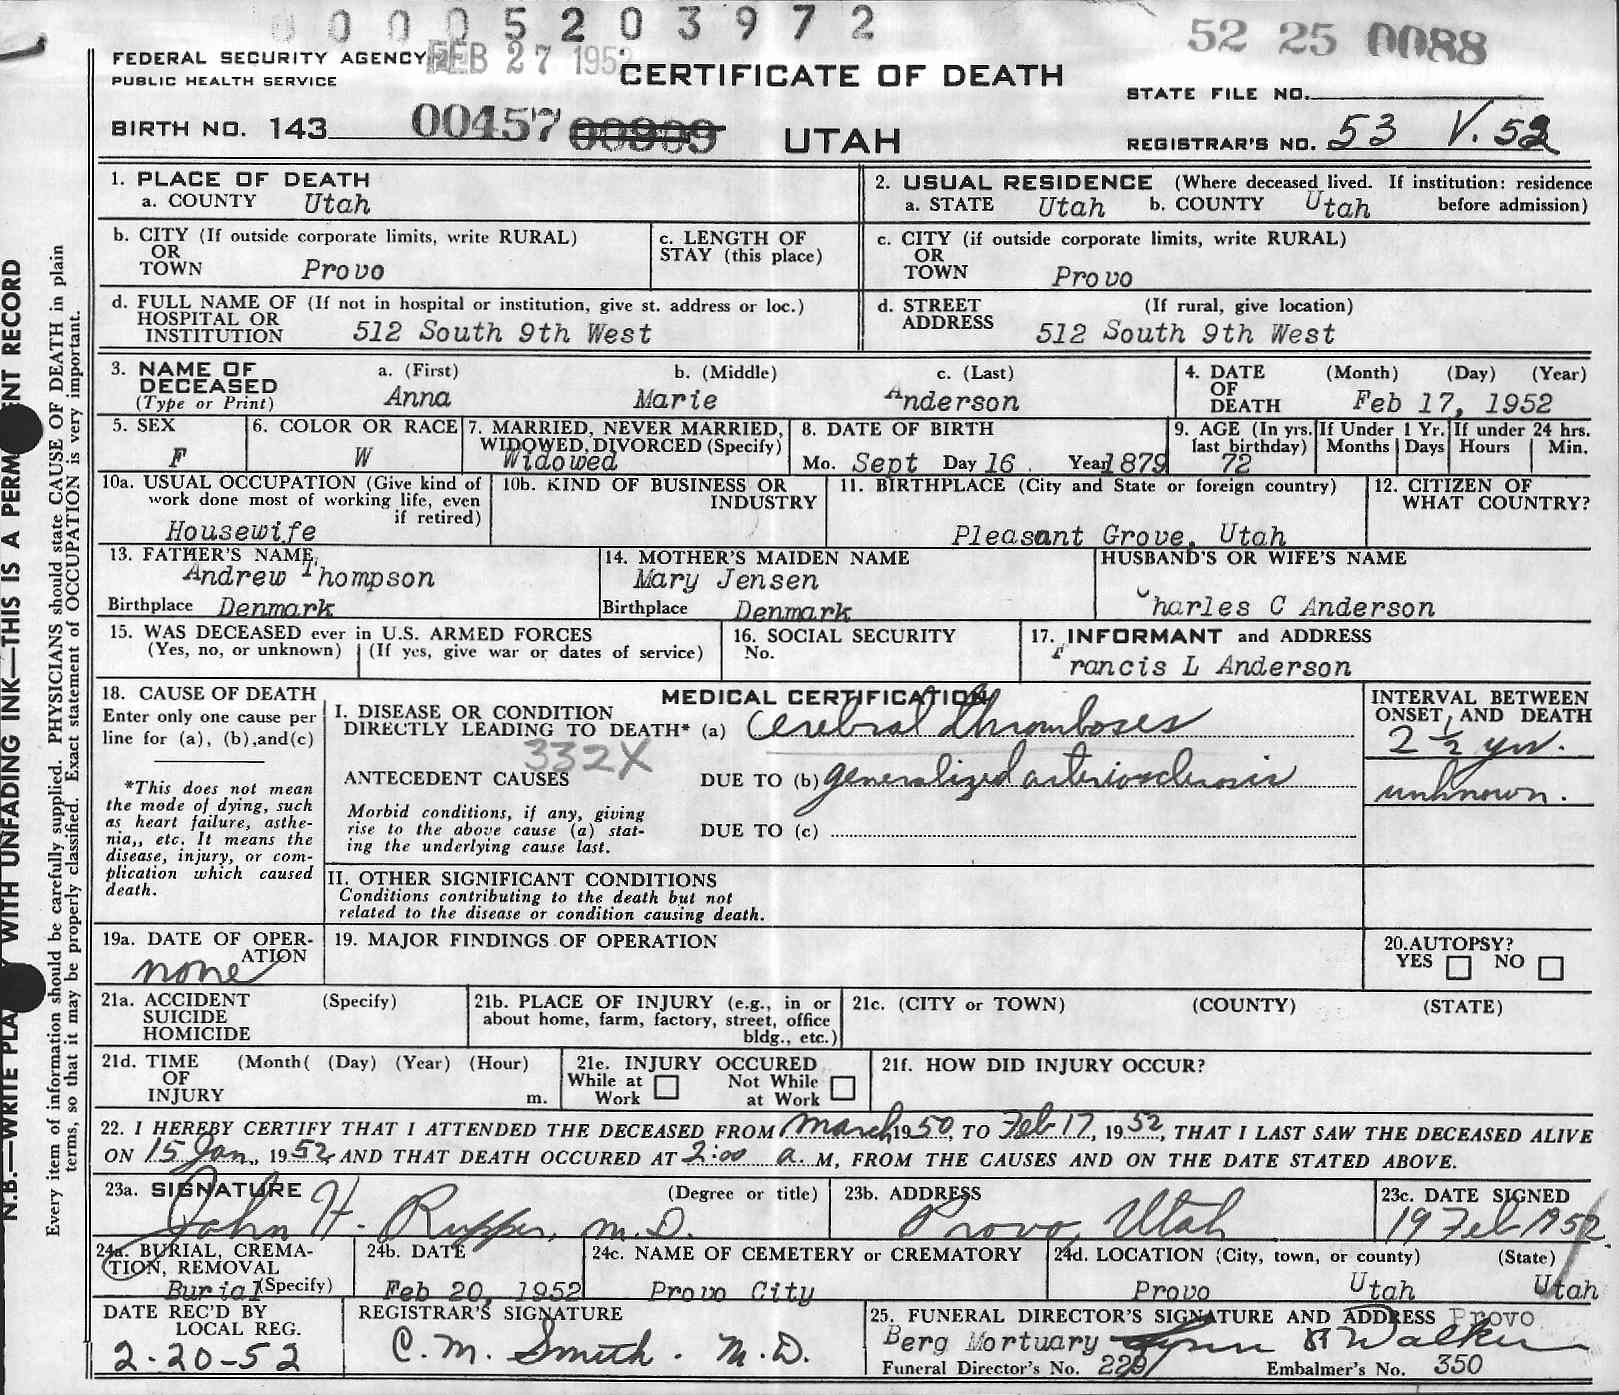 0 0 0 5 2 0 3 9 7 2
52 25 0088
FEDERAL SECURITY AGENCY FEB 27 1952
CERTIFICATE OF DEATH
PUBLIC HEALTH SERVICE
STATE FILE NO.
BIRTH NO. 143 00457 00909
UTAH
REGISTRAR'S NO. 53 V. 52
1. PLACE OF DEATH
a. COUNTY Utah
2. USUAL RESIDENCE (Where deceased lived. If institution: residence
a. STATE Utah b. COUNTY Utah before admission)
b. CITY (If outside corporate limits, write RURAL)
OR
TOWN Provo
c. LENGTH OF
STAY (this place)
c. CITY (if outside corporate limits, write RURAL)
OR
TOWN Provo
d. FULL NAME OF (If not in hospital or institution, give st. address or loc.)
HOSPITAL OR
INSTITUTION 512 South 9th West
d. STREET (If rural, give location)
ADDRESS 512 South 9th West
3. NAME OF a. (First) b. (Middle) c. (Last)
DECEASED
(Type or Print) Anna Marie Anderson
4. DATE (Month) (Day) (Year)
OF
DEATH Feb 17, 1952
5. SEX
F
6. COLOR OR RACE
W
7. MARRIED, NEVER MARRIED,
WIDOWED, DIVORCED (Specify)
Widowed
8. DATE OF BIRTH
Mo. Sept Day 16 Year 1879
9. AGE (In yrs.
last birthday)
72
If Under 1 Yr.
Months Days
If under 24 hrs.
Hours Min.
10a. USUAL OCCUPATION (Give kind of
work done most of working life, even
if retired)
Housewife
10b. KIND OF BUSINESS OR
INDUSTRY
11. BIRTHPLACE (City and State or foreign country)
Pleasant Grove, Utah
12. CITIZEN OF
WHAT COUNTRY?
13. FATHER'S NAME
Andrew Thompson
Birthplace Denmark
14. MOTHER'S MAIDEN NAME
Mary Jensen
Birthplace Denmark
HUSBAND'S OR WIFE'S NAME
Charles C Anderson
15. WAS DECEASED ever in U.S. ARMED FORCES
(Yes, no, or unknown) (If yes, give war or dates of service)
16. SOCIAL SECURITY
No.
17. INFORMANT and ADDRESS
Francis L Anderson
18. CAUSE OF DEATH
Enter only one cause per
line for (a), (b), and (c)
*This does not mean
the mode of dying, such
as heart failure, asthe-
nia,, etc. It means the
disease, injury, or com-
plication which caused
death.
MEDICAL CERTIFICATION
I. DISEASE OR CONDITION
DIRECTLY LEADING TO DEATH* (a) Cerebral thromboses
332X
ANTECEDENT CAUSES DUE TO (b) generalized arteriosclerosis
Morbid conditions, if any, giving
rise to the above cause (a) stat-
ing the underlying cause last.
DUE TO (c)
II. OTHER SIGNIFICANT CONDITIONS
Conditions contributing to the death but not
related to the disease or condition causing death.
INTERVAL BETWEEN
ONSET AND DEATH
2 1/2 yrs.
unknown.
19a. DATE OF OPER-
ATION
none
19. MAJOR FINDINGS OF OPERATION
20. AUTOPSY?
YES NO
21a. ACCIDENT (Specify)
SUICIDE
HOMICIDE
21b. PLACE OF INJURY (e.g., in or
about home, farm, factory, street, office
bldg., etc.)
21c. (CITY or TOWN) (COUNTY) (STATE)
21d. TIME (Month( (Day) (Year) (Hour)
OF
INJURY m.
21e. INJURY OCCURED
While at Not While
Work at Work
21f. HOW DID INJURY OCCUR?
22. I HEREBY CERTIFY THAT I ATTENDED THE DECEASED FROM March 1950, TO Feb 17, 1952, THAT I LAST SAW THE DECEASED ALIVE
ON 15 Jan., 1952, AND THAT DEATH OCCURED AT 2:00 a. M, FROM THE CAUSES AND ON THE DATE STATED ABOVE.
23a. SIGNATURE (Degree or title)
John H. Rupper, M.D.
23b. ADDRESS
Provo, Utah
23c. DATE SIGNED
19 Feb 1952
24a. BURIAL, CREMA-
TION, REMOVAL
Burial (Specify)
24b. DATE
Feb 20, 1952
24c. NAME OF CEMETERY or CREMATORY
Provo City
24d. LOCATION (City, town, or county) (State)
Provo Utah Utah
DATE REC'D BY
LOCAL REG.
2-20-52
REGISTRAR'S SIGNATURE
C. M. Smith. M.D.
25. FUNERAL DIRECTOR'S SIGNATURE AND ADDRESS Provo
Berg Mortuary Walker
Funeral Director's No. Embalmer's No. 350
N.B.—WRITE WITH UNFADING INK—THIS IS A RECORD
Every item of information should be carefully supplied. PHYSICIANS should state CAUSE OF DEATH in plain
terms, so that it may be properly classified. Exact statement of OCCUPATION is very important.